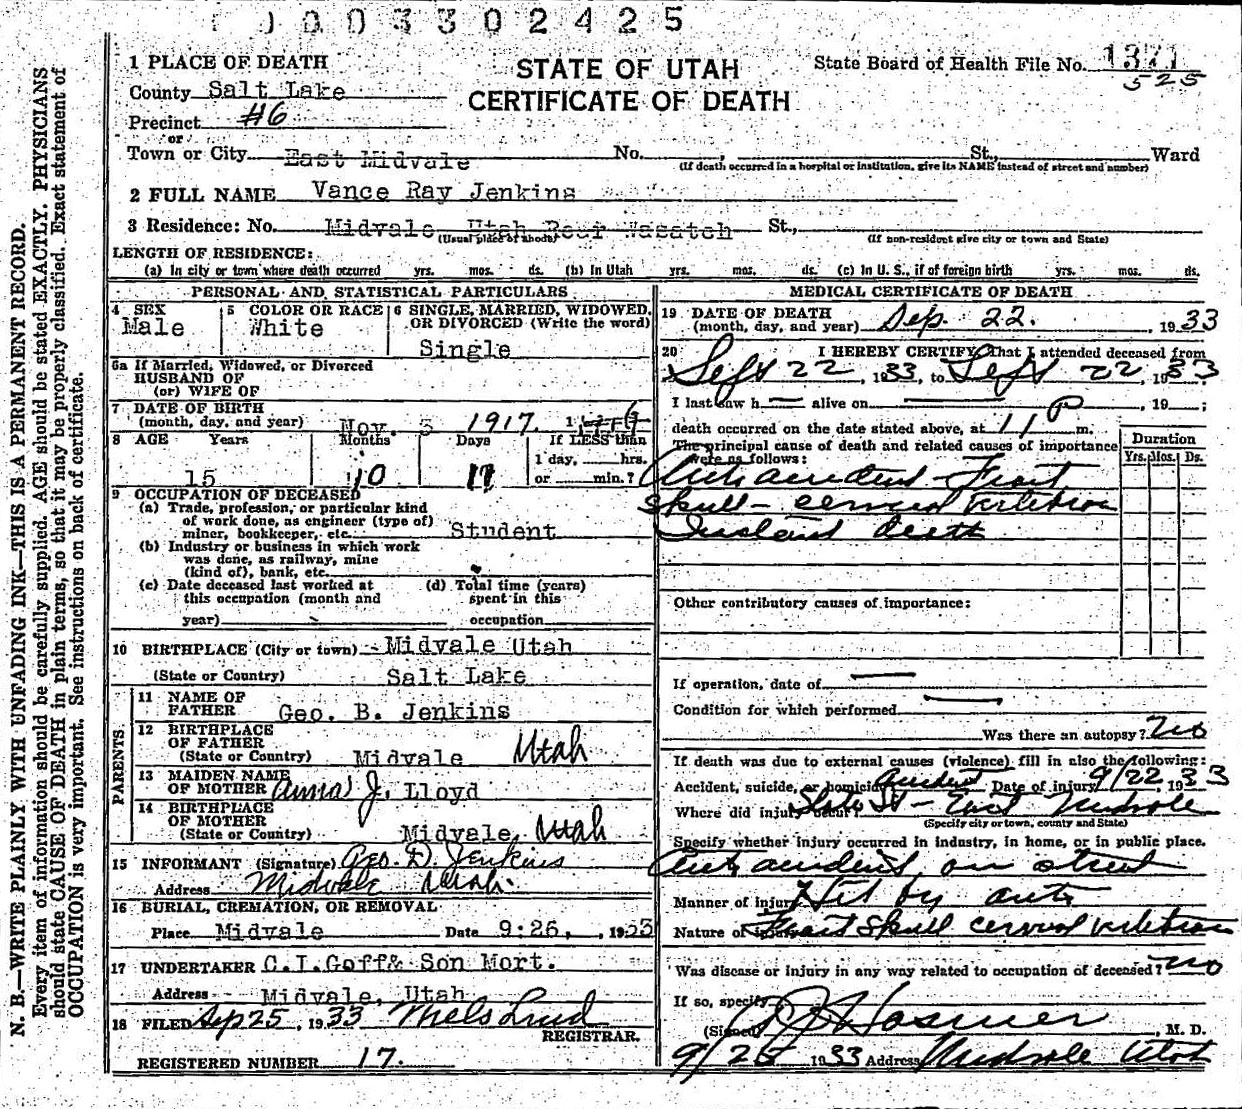 0003302425
1 PLACE OF DEATH
County Salt Lake
Precinct #6
or
Town or City East Midvale No. , St., Ward
(If death occurred in a hospital or institution, give its NAME instead of street and number)
STATE OF UTAH
CERTIFICATE OF DEATH
State Board of Health File No. 1371
525
2 FULL NAME Vance Ray Jenkins
3 Residence: No. Midvale Utah Rear Wasatch St.,
(Usual place of abode)
(If non-resident give city or town and State)
LENGTH OF RESIDENCE:
(a) In city or town where death occurred yrs. mos. ds. (b) In Utah yrs. mos. ds. (c) In U. S., if of foreign birth yrs. mos. ds.
PERSONAL AND STATISTICAL PARTICULARS
4 SEX
Male
5 COLOR OR RACE
White
6 SINGLE, MARRIED, WIDOWED, OR DIVORCED (Write the word)
Single
6a If Married, Widowed, or Divorced
HUSBAND OF
(or) WIFE OF
7 DATE OF BIRTH
(month, day, and year) Nov. 5 1917.
8 AGE Years Months Days If LESS than
15 10 17 1 day, hrs.
or min.?
9 OCCUPATION OF DECEASED
(a) Trade, profession, or particular kind
of work done, as engineer (type of)
miner, bookkeeper, etc. Student
(b) Industry or business in which work
was done, as railway, mine
(kind of), bank, etc.
(c) Date deceased last worked at
this occupation (month and
year)
(d) Total time (years)
spent in this
occupation
10 BIRTHPLACE (City or town) Midvale Utah
(State or Country) Salt Lake
PARENTS
11 NAME OF
FATHER Geo. B. Jenkins
12 BIRTHPLACE
OF FATHER
(State or Country) Midvale Utah
13 MAIDEN NAME
OF MOTHER Anna J. Lloyd
14 BIRTHPLACE
OF MOTHER
(State or Country) Midvale, Utah
15 INFORMANT (Signature) Geo. D. Jenkins
Address Midvale Utah.
16 BURIAL, CREMATION, OR REMOVAL
Place Midvale Date 9:26, , 1933
17 UNDERTAKER C.I.Goff& Son Mort.
Address Midvale, Utah
18 FILED Sep 25, 1933 Niels Lind
REGISTRAR.
REGISTERED NUMBER 17.
MEDICAL CERTIFICATE OF DEATH
19 DATE OF DEATH
(month, day, and year) Sep. 22. , 1933
20 I HEREBY CERTIFY, That I attended deceased from
Sept 22, 1933, to Sept 22, 1933
I last saw h alive on , 19 ;
death occurred on the date stated above, at 11 P m.
The principal cause of death and related causes of importance
were as follows:
Auto accident - Fract
Skull - cervical vertebrae
Instant death
Duration
Yrs. Mos. Ds.
Other contributory causes of importance:
If operation, date of
Condition for which performed
Was there an autopsy? No
If death was due to external causes (violence) fill in also the following:
Accident, suicide, or homicide accident Date of injury 9/22, 1933
Where did injury occur? State St - East Midvale
(Specify city or town, county and State)
Specify whether injury occurred in industry, in home, or in public place.
Auto accident, on street
Manner of injury Hit by auto
Nature of injury Fract Skull cervical vertebrae
Was disease or injury in any way related to occupation of deceased? No
If so, specify
(Signed) Hosmer , M. D.
9/25 1933 Address Midvale Utah
N. B.—WRITE PLAINLY WITH UNFADING INK—THIS IS A PERMANENT RECORD.
Every item of information should be carefully supplied. AGE should be stated EXACTLY. PHYSICIANS
should state CAUSE OF DEATH in plain terms, so that it may be properly classified. Exact statement of
OCCUPATION is very important. See instructions on back of certificate.